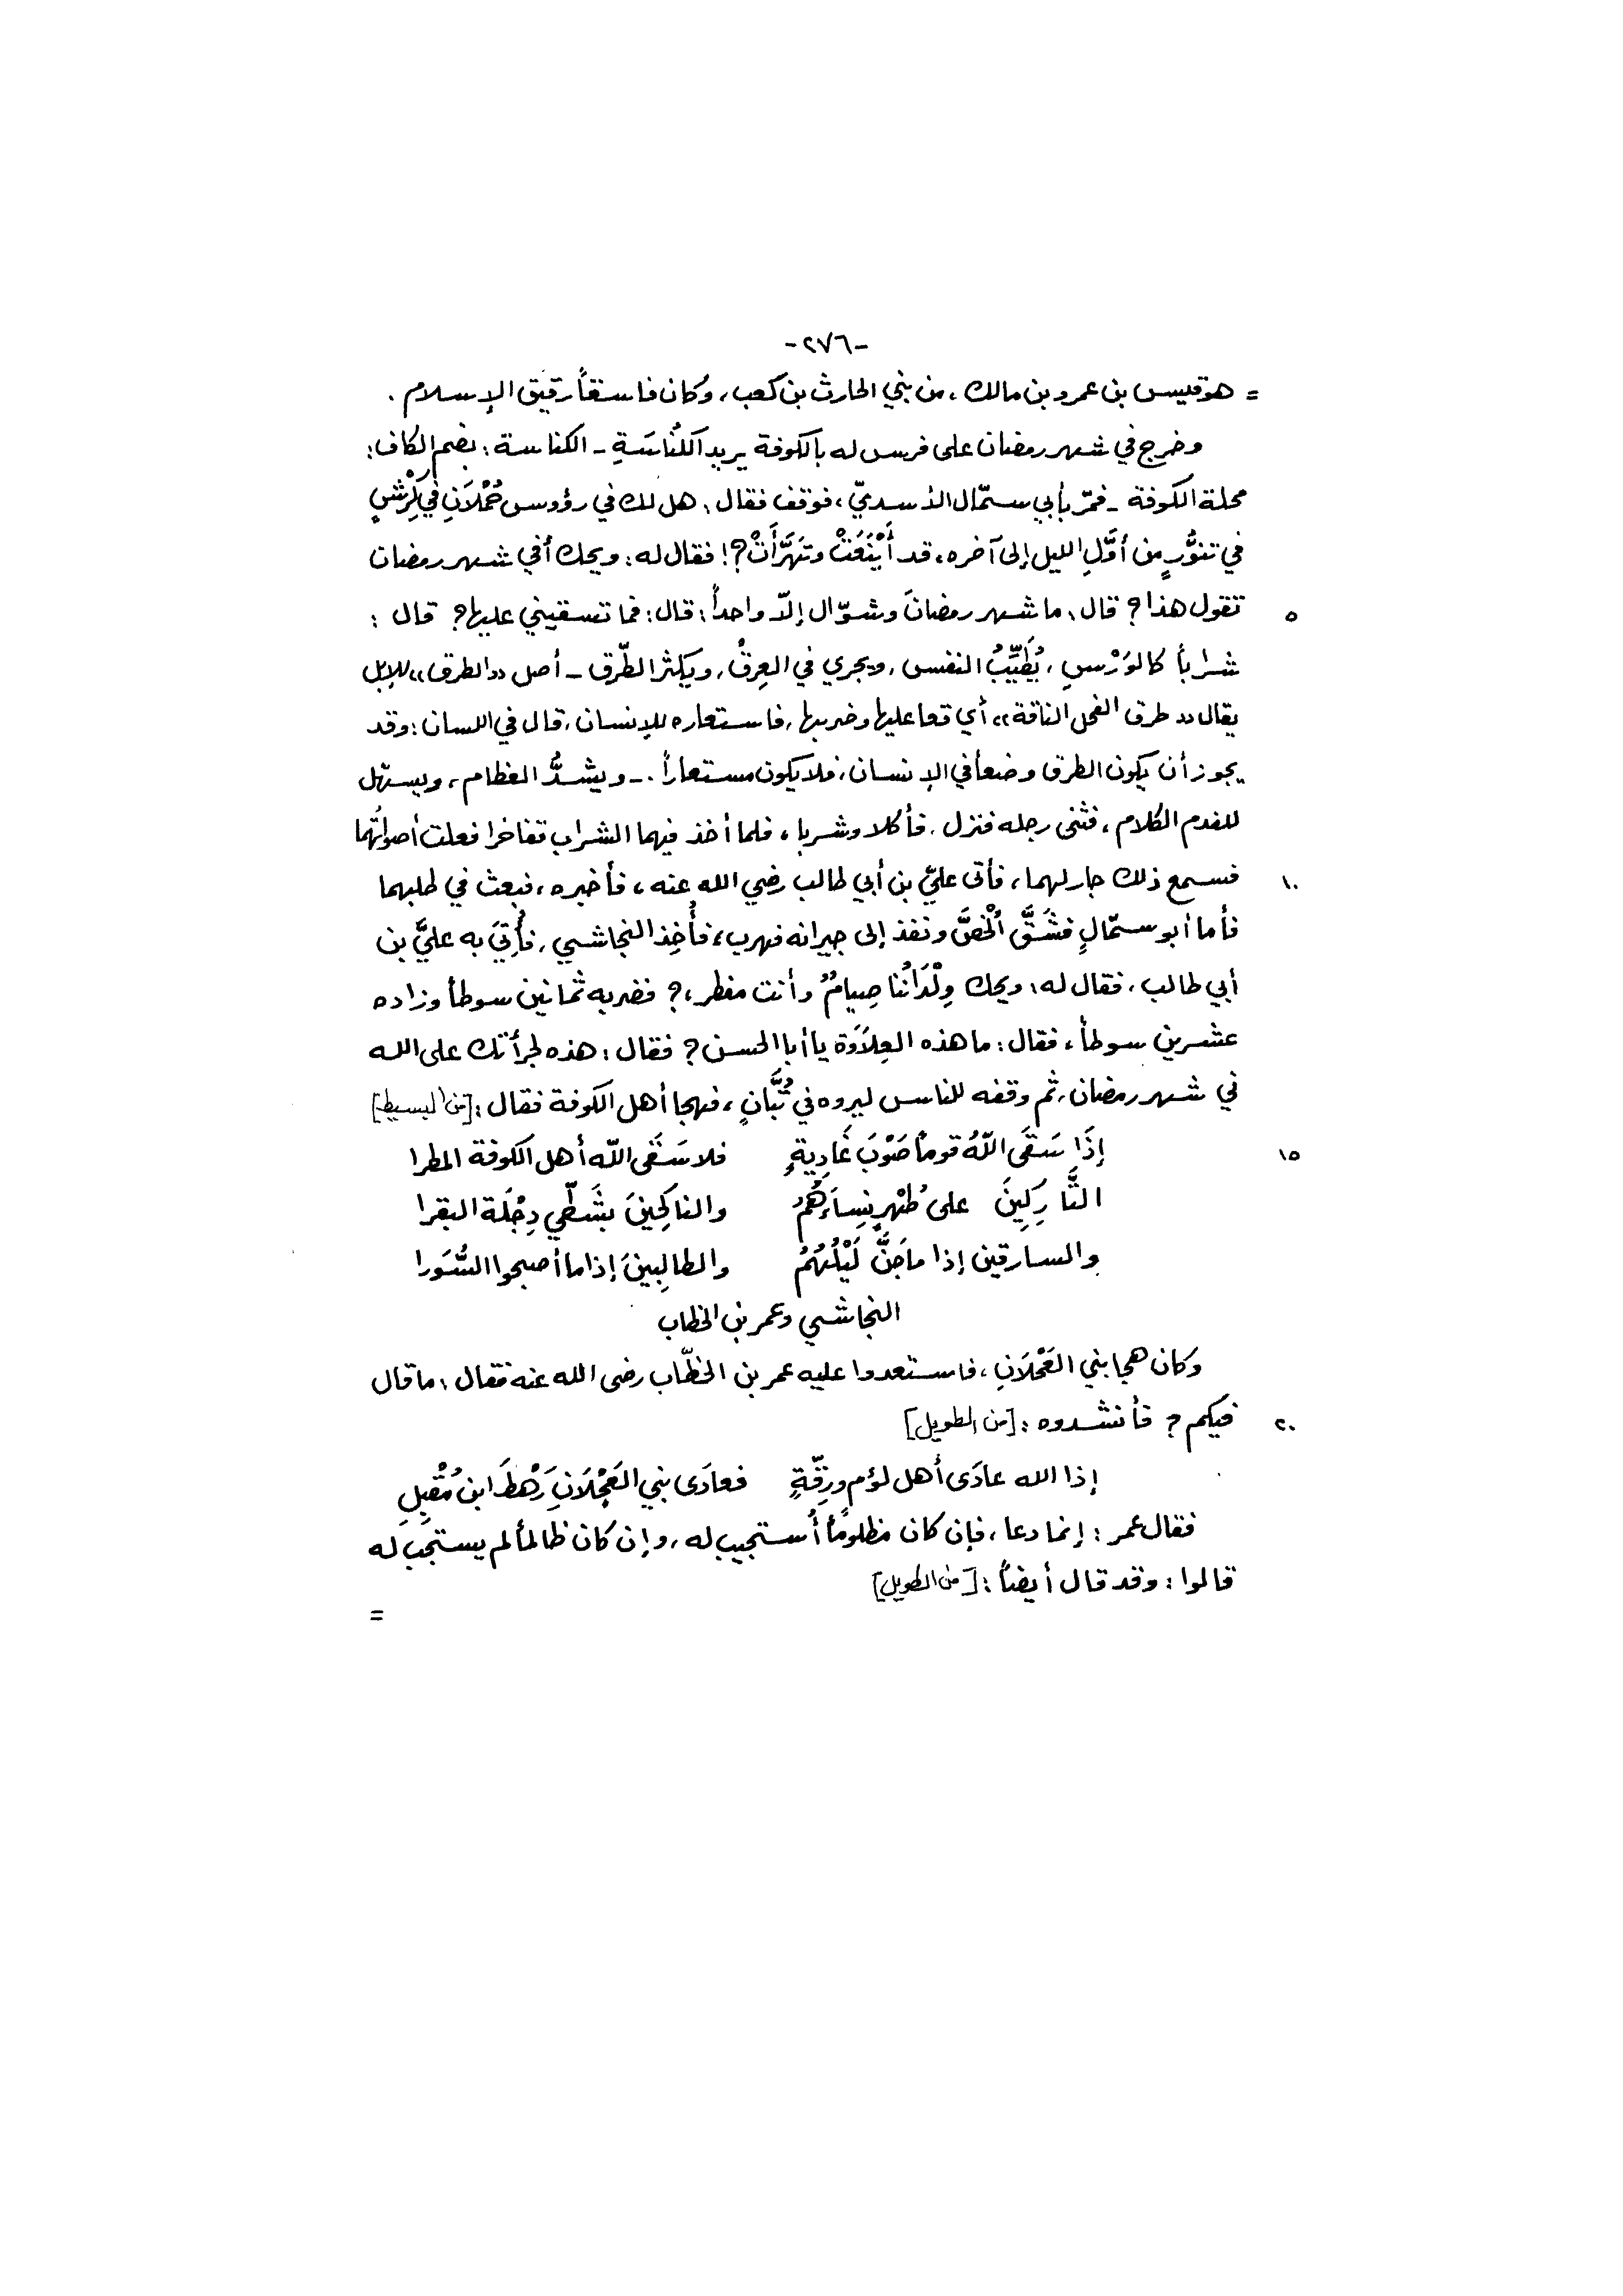 -٢٧٦-
= هو قيس بن عمرو بن مالك، من بني الحارث بن كعب، وكان فاسقاً رقيق الإسلام .
وخرج في شهر رمضان على فرس له بالكوفة يريد الكُنَاسَةِ - الكناسة: بضم الكاف:
محلة الكوفة - فمرّ بأبي سمّال الأسديّ، فوقف فقال: هل لك في رؤوس حُمْلَانِ في كَرْشٍ
في تنوُّرٍ من أوَّلِ الليل إلى آخره، قد أَيْنَعَتْ وتَهَرَّأَتْ؟! فقال له: ويحك أفي شهر رمضان
تقول هذا؟ قال: ما شهر رمضانَ وشوّال إلّا واحداً: قال: فما تسقيني عليها؟ قال :
٥
شراباً كالوَرْسِ، يُطَيِّبُ النفس، ويجري في العِرقْ، ويكثر الطّرق - أصل «الطرق» للإبل
يقال «طرق الفحل الناقة» أي قعا عليها وضربها، فاستعاره للإنسان، قال في اللسان: وقد
يجوز أن يكون الطرق وضعاً في الإنسان، فلا يكون مستعاراً. - ويشدُّ العظام، ويسهّل
للفدم الكلام، فثنى رجله فنزل، فأكلا وشربا، فلما أخذ فيهما الشراب تفاخرا فعلت أصواتُهما
فسمع ذلك جار لهما، فأتى عليَّ بن أبي طالب رضي الله عنه، فأخبره، فبعث في طلبهما
١٠
فأما أبو سمّالٍ فشَقَّ الْخصَّ ونفذ إلى جيرانه فهرب، فأُخِذ النجاشي، فأُتِيَ به عليَّ بن
أبي طالب، فقال له: ويحك وِلْدَانُنا صِيامٌ وأنت مفطر،؟ فضربه ثمانين سوطاً وزاده
عشرين سوطاً، فقال: ما هذه العِلَاوَة يا أبا الحسن؟ فقال: هذه لجرأتك على الله
في شهر رمضان، ثم وقفه للناس ليروه في تُبَّانٍ، فهجا أهل الكوفة فقال: [من البسيط]
إِذَا سَقَى اللَّهُ قوماً صَوْبَ غَادِيةٍ فلا سَقَى اللّه أهل الكوفة المطرا
١٥
التَّارِكِينَ على طُهْرٍ نِسِاءَهُمُ والناكِحينَ بشَطَّي دِجْلَة البقرا
والسارقين إذا ما جَنَّ لَيْلُهُمُ والطالِبِينَ إذا ما أصبحوا السُّوَرا
النجاشي وعمر بن الخطاب
وكان هجا بني العَجْلَانِ، فاستعدوا عليه عمر بن الخطّاب رضى الله عنه فقال: ما قال
فيكم؟ فأنشدوه: [من الطويل]
٢٠
إذا الله عادَى أهل لؤم ورِقّةٍ فعادَى بني العَجْلَانِ رَهْطَ ابن مُقْبِلِ
فقال عمر: إنما دعا، فإن كان مظلوماً أُستجيب له، وإن كان ظالماً لم يستجب له
قالوا: وقد قال أيضاً: [من الطويل]
=